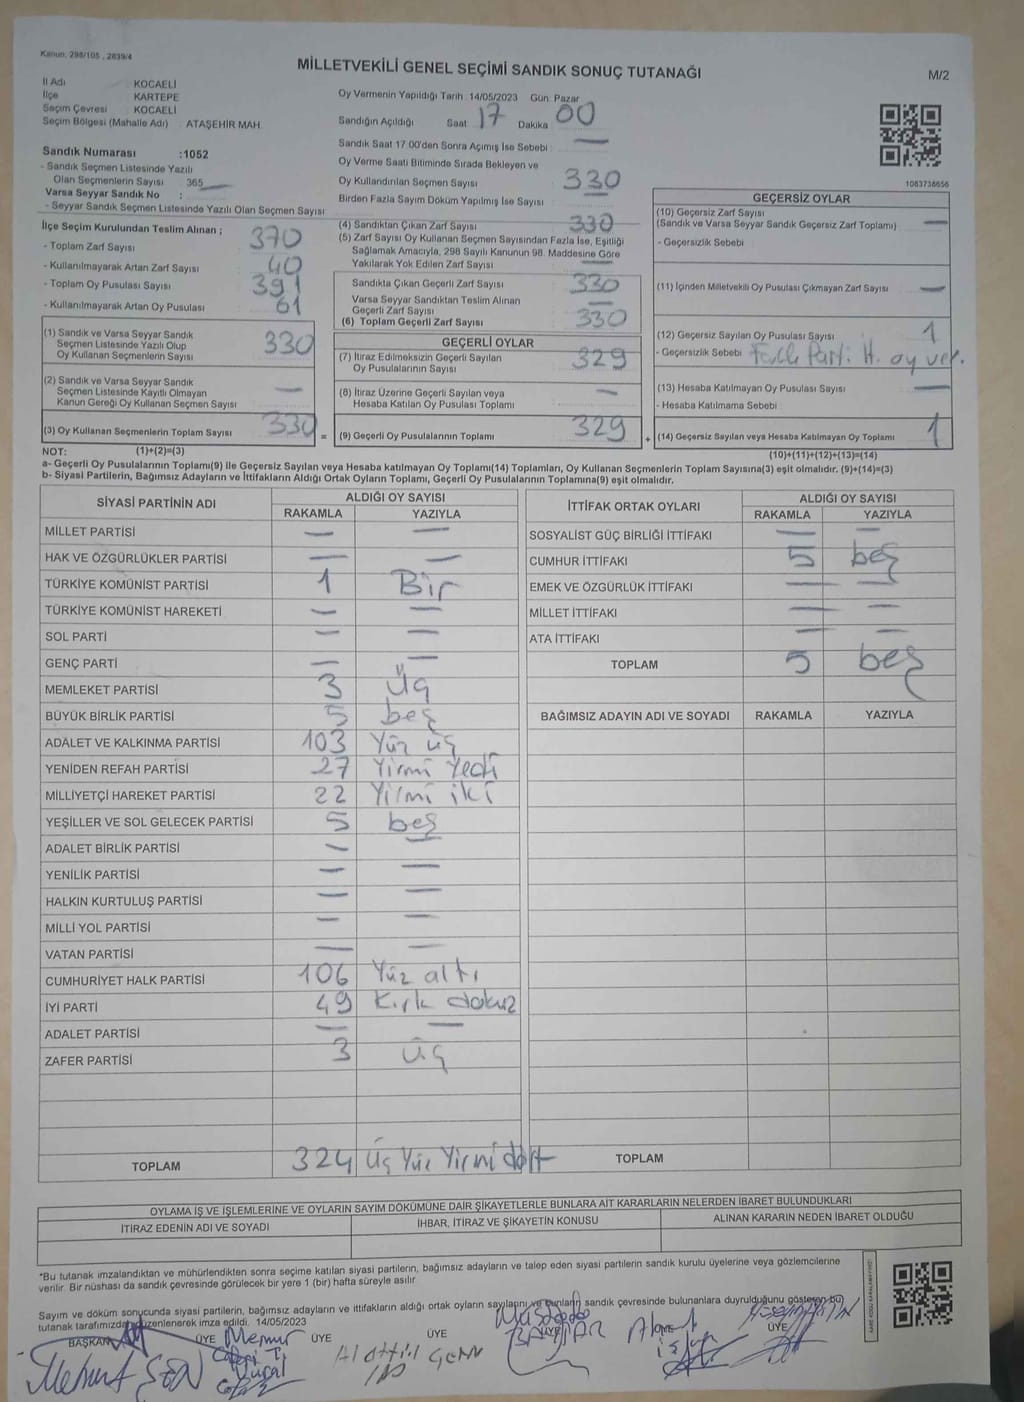 Kanun: 298/105 , 2839/4
MİLLETVEKİLİ GENEL SEÇİMİ SANDIK SONUÇ TUTANAĞI
M/2
İl Adı : KOCAELİ
İlçe : KARTEPE
Seçim Çevresi : KOCAELİ
Seçim Bölgesi (Mahalle Adı) : ATAŞEHİR MAH.
Sandık Numarası :1052
- Sandık Seçmen Listesinde Yazılı
Olan Seçmenlerin Sayısı : 365
Varsa Seyyar Sandık No :
- Seyyar Sandık Seçmen Listesinde Yazılı Olan Seçmen Sayısı :
Oy Vermenin Yapıldığı Tarih :14/05/2023 Gün: Pazar
Sandığın Açıldığı Saat 17 Dakika 00
Sandık Saat 17.00'den Sonra Açımış İse Sebebi : —
Oy Verme Saati Bitiminde Sırada Bekleyen ve
Oy Kullandırılan Seçmen Sayısı : 330
Birden Fazla Sayım Döküm Yapılmış İse Sayısı : —
1063738656
İlçe Seçim Kurulundan Teslim Alınan ;
- Toplam Zarf Sayısı : 370
- Kullanılmayarak Artan Zarf Sayısı : 40
- Toplam Oy Pusulası Sayısı : 391
- Kullanılmayarak Artan Oy Pusulası : 61
(1) Sandık ve Varsa Seyyar Sandık
Seçmen Listesinde Yazılı Olup
Oy Kullanan Seçmenlerin Sayısı 330
(2) Sandık ve Varsa Seyyar Sandık
Seçmen Listesinde Kayıtlı Olmayan
Kanun Gereği Oy Kullanan Seçmen Sayısı —
(3) Oy Kullanan Seçmenlerin Toplam Sayısı 330
(4) Sandıktan Çıkan Zarf Sayısı : 330
(5) Zarf Sayısı Oy Kullanan Seçmen Sayısından Fazla İse, Eşitliği
Sağlamak Amacıyla, 298 Sayılı Kanunun 98. Maddesine Göre
Yakılarak Yok Edilen Zarf Sayısı : —
Sandıkta Çıkan Geçerli Zarf Sayısı : 330
Varsa Seyyar Sandıktan Teslim Alınan
Geçerli Zarf Sayısı : —
(6) Toplam Geçerli Zarf Sayısı : 330
GEÇERLİ OYLAR
(7) İtiraz Edilmeksizin Geçerli Sayılan
Oy Pusulalarının Sayısı 329
(8) İtiraz Üzerine Geçerli Sayılan veya
Hesaba Katılan Oy Pusulası Toplamı —
= (9) Geçerli Oy Pusulalarının Toplamı 329 +
GEÇERSİZ OYLAR
(10) Geçersiz Zarf Sayısı
(Sandık ve Varsa Seyyar Sandık Geçersiz Zarf Toplamı) —
- Geçersizlik Sebebi :
(11) İçinden Milletvekili Oy Pusulası Çıkmayan Zarf Sayısı : —
(12) Geçersiz Sayılan Oy Pusulası Sayısı : 1
- Geçersizlik Sebebi : Parti. oy ver.
(13) Hesaba Katılmayan Oy Pusulası Sayısı : —
- Hesaba Katılmama Sebebi :
(14) Geçersiz Sayılan veya Hesaba Katılmayan Oy Toplamı 1
NOT: (1)+(2)=(3) (10)+(11)+(12)+(13)=(14)
a- Geçerli Oy Pusulalarının Toplamı(9) ile Geçersiz Sayılan veya Hesaba katılmayan Oy Toplamı(14) Toplamları, Oy Kullanan Seçmenlerin Toplam Sayısına(3) eşit olmalıdır. (9)+(14)=(3)
b- Siyasi Partilerin, Bağımsız Adayların ve İttifakların Aldığı Ortak Oyların Toplamı, Geçerli Oy Pusulalarının Toplamına(9) eşit olmalıdır.
SİYASİ PARTİNİN ADI ALDIĞI OY SAYISI
RAKAMLA YAZIYLA
MİLLET PARTİSİ — —
HAK VE ÖZGÜRLÜKLER PARTİSİ — —
TÜRKİYE KOMÜNİST PARTİSİ 1 Bir
TÜRKİYE KOMÜNİST HAREKETİ — —
SOL PARTİ — —
GENÇ PARTİ — —
MEMLEKET PARTİSİ 3 Üç
BÜYÜK BİRLİK PARTİSİ 5 beş
ADALET VE KALKINMA PARTİSİ 103 Yüz üç
YENİDEN REFAH PARTİSİ 27 Yirmi Yedi
MİLLİYETÇİ HAREKET PARTİSİ 22 Yirmi iki
YEŞİLLER VE SOL GELECEK PARTİSİ 5 beş
ADALET BİRLİK PARTİSİ — —
YENİLİK PARTİSİ — —
HALKIN KURTULUŞ PARTİSİ — —
MİLLİ YOL PARTİSİ — —
VATAN PARTİSİ — —
CUMHURİYET HALK PARTİSİ 106 Yüz altı
İYİ PARTİ 49 Kırk dokuz
ADALET PARTİSİ — —
ZAFER PARTİSİ 3 üç
TOPLAM 324 üç Yüz Yirmi dört
İTTİFAK ORTAK OYLARI ALDIĞI OY SAYISI
RAKAMLA YAZIYLA
SOSYALİST GÜÇ BİRLİĞİ İTTİFAKI — —
CUMHUR İTTİFAKI 5 beş
EMEK VE ÖZGÜRLÜK İTTİFAKI — —
MİLLET İTTİFAKI — —
ATA İTTİFAKI — —
TOPLAM 5 beş
BAĞIMSIZ ADAYIN ADI VE SOYADI RAKAMLA YAZIYLA
TOPLAM
OYLAMA İŞ VE İŞLEMLERİNE VE OYLARIN SAYIM DÖKÜMÜNE DAİR ŞİKAYETLERLE BUNLARA AİT KARARLARIN NELERDEN İBARET BULUNDUKLARI
İTİRAZ EDENİN ADI VE SOYADI İHBAR, İTİRAZ VE ŞİKAYETİN KONUSU ALINAN KARARIN NEDEN İBARET OLDUĞU
*Bu tutanak imzalandıktan ve mühürlendikten sonra seçime katılan siyasi partilerin, bağımsız adayların ve talep eden siyasi partilerin sandık kurulu üyelerine veya gözlemcilerine
verilir. Bir nüshası da sandık çevresinde görülecek bir yere 1 (bir) hafta süreyle asılır.
Sayım ve döküm sonucunda siyasi partilerin, bağımsız adayların ve ittifakların aldığı ortak oyların sayılarını ve bunların sandık çevresinde bulunanlara duyrulduğunu gösteren bu
tutanak tarafımızdan düzenlenerek imza edildi. 14/05/2023
BAŞKAN ÜYE Memur ÜYE ÜYE ÜYE ÜYE ÜYE
Mehmet ŞEN